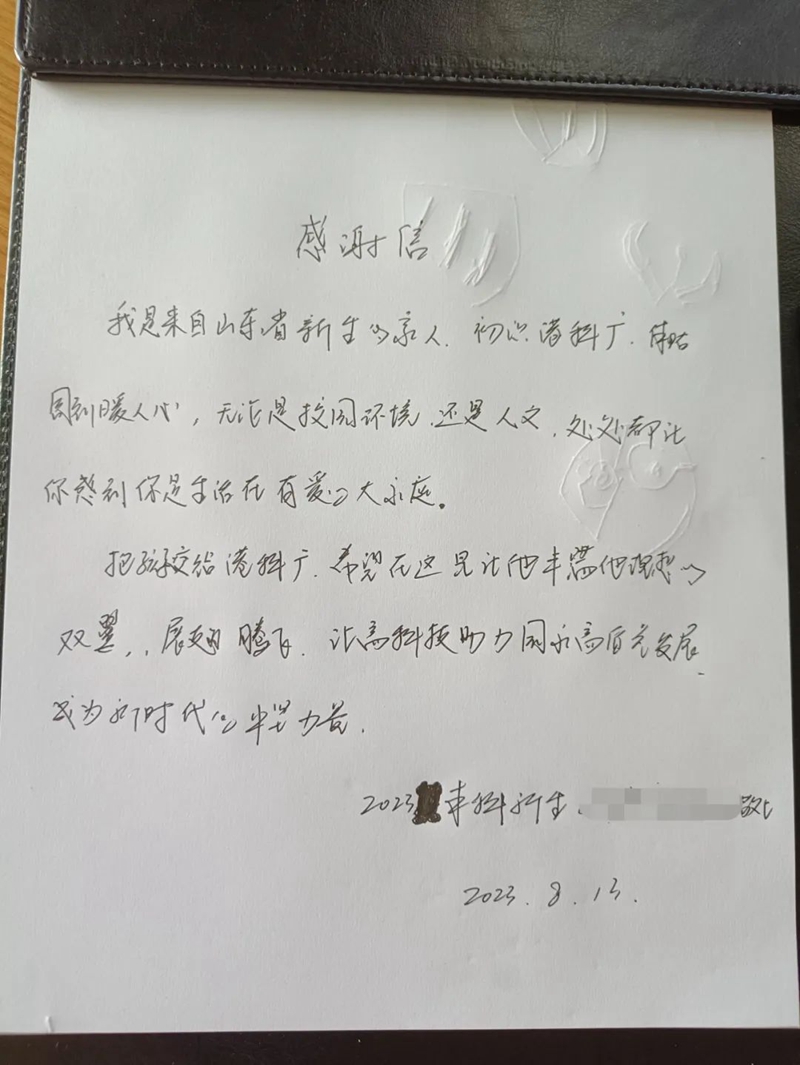 感谢信
我是来自山东省新生的家人,初识港科广,体贴
周到暖人心,无论是校园环境,还是人文,处处都让
你感到你是生活在有爱的大家庭。
把孩子交给港科广,希望在这里让他丰满他理想的
双翼,,展翅腾飞,让高科技助力国家高质量发展,
成为新时代的中坚力量.
2023 本科新生 敬上
2023.8.13.